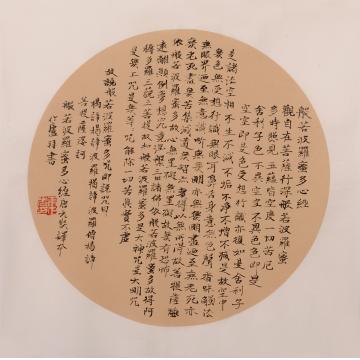 般若波羅蜜多心經
觀自在菩薩行深般若波羅蜜
多時照見五蘊皆空度一切苦厄
舍利子色不異空空不異色色即是
空空即是色受想行識亦復如是舍利子
是諸法空相不生不滅不垢不淨不增不減是故空中
無色無受想行識無眼耳鼻舌身意無色聲香味觸法
無眼界乃至無意識界無無明亦無無明盡乃至無老死亦
無老死盡無苦集滅道無智亦無得以無所得故菩提薩埵
依般若波羅蜜多故心無罣礙無罣礙故無有恐怖
遠離顛倒夢想究竟涅槃三世諸佛依般若波羅蜜多故得阿
耨多羅三藐三菩提故知般若波羅蜜多是大神咒是大明咒
是無上咒是無等等咒能除一切苦真實不虛
故說般若波羅蜜多咒即說咒曰
揭諦揭諦波羅揭諦波羅僧揭諦
菩提薩婆訶
般若波羅蜜多心經唐玄奘譯本
書